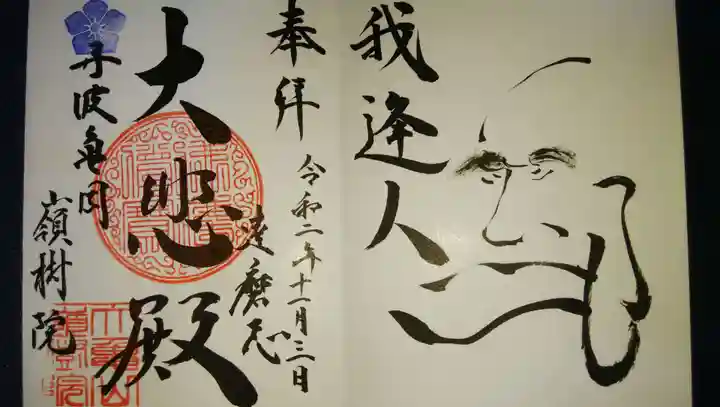 我逢人
奉拝
令和二年十一月三日
達磨忌
大悲殿
丹波亀岡
嶺樹院